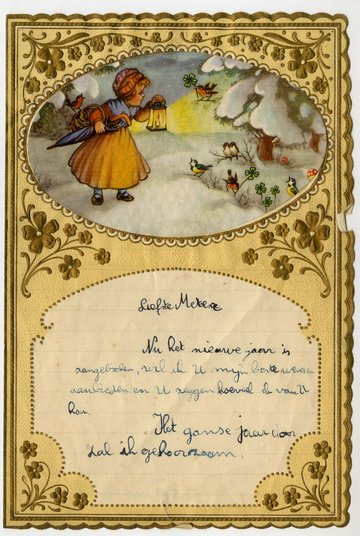 Liefste Meter
Nu het nieuwe jaar is
aangebroken, wil ik U mijn beste wensen
aanbieden en U zeggen hoeveel ik van U
hou.
Het ganse jaar door
zal ik gehoorzaam.